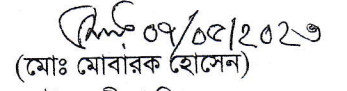 ০৭/০৫/২০২৩
(মোঃ মোবারক হোসেন)